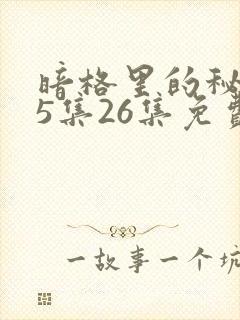 暗格里的秘
5集26集免费
一故事一个坑